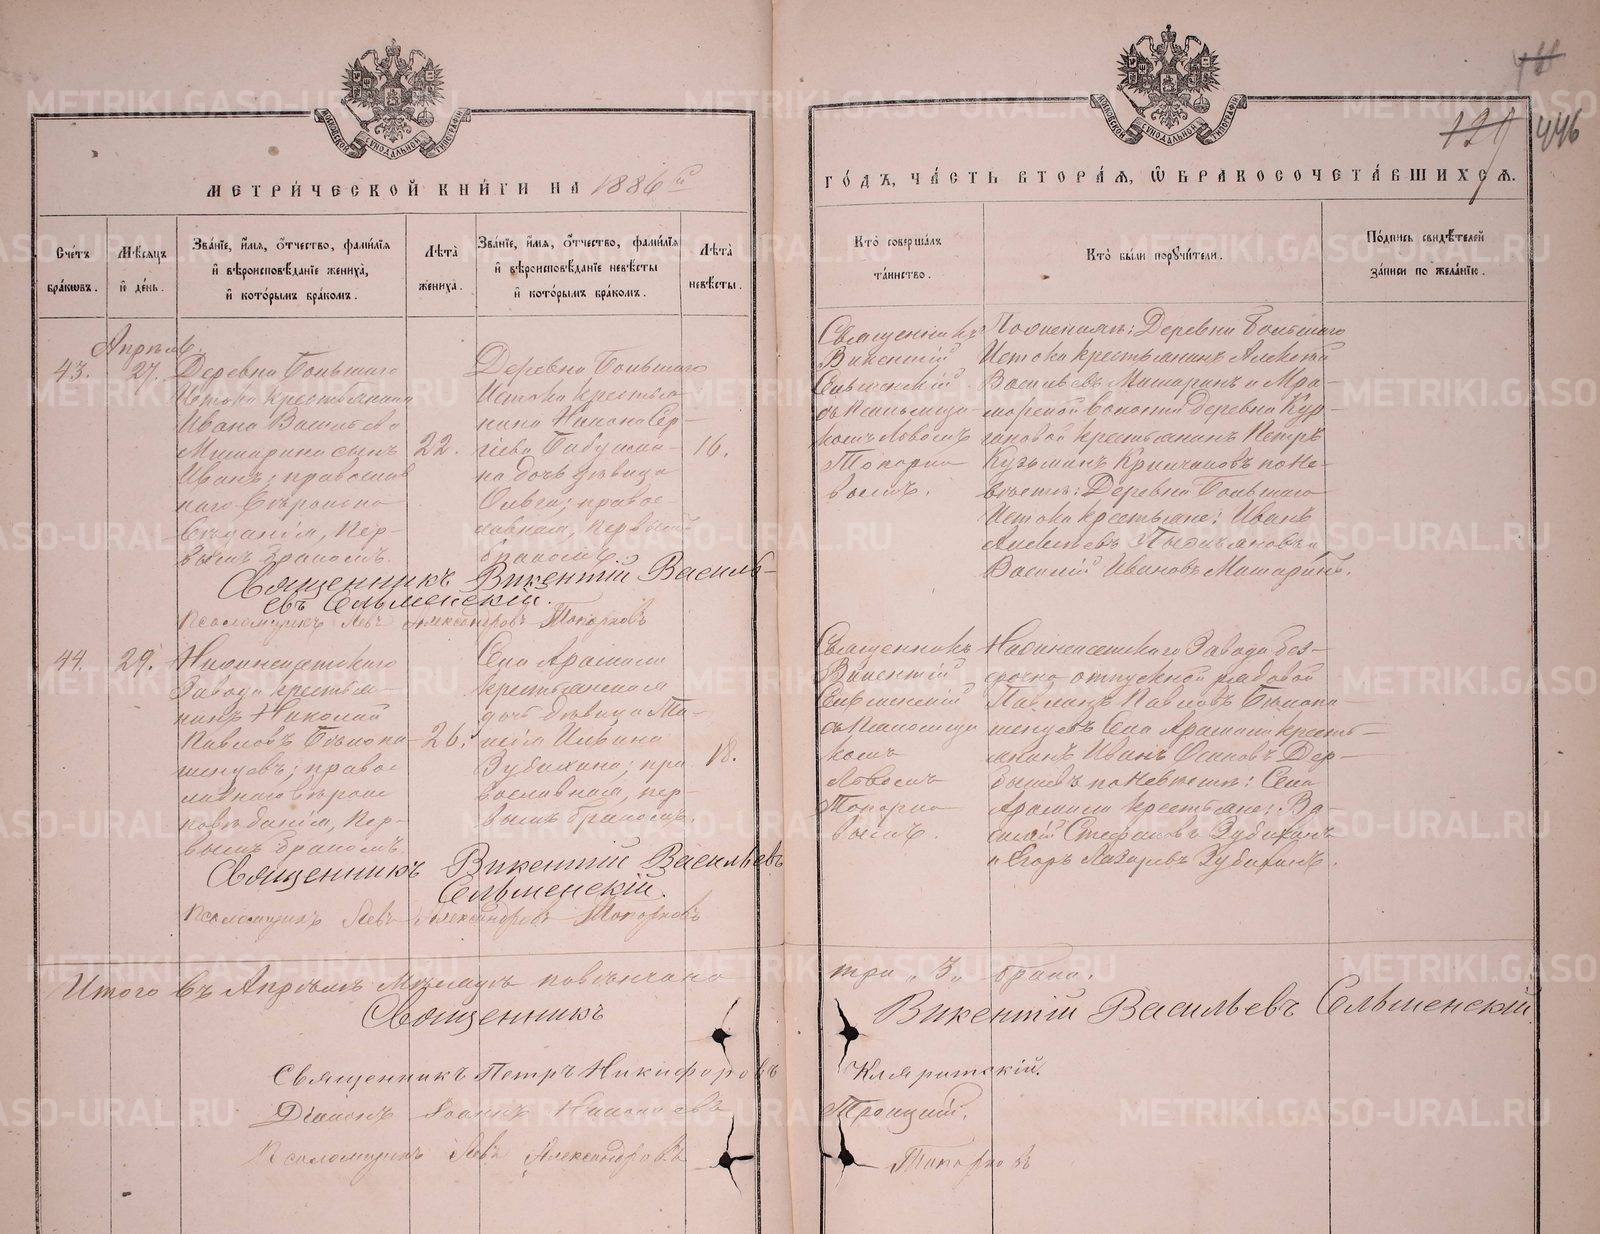 МЕТРИ́ЧЕСКОЙ КНИ́ГИ НА 1886й
ГО́ДЪ, ЧА́СТЬ ВТОРА́Я, Ѿ БРАКОСОЧЕТА́ВШИХСЯ.
129 446
Сче́тъ бра́кѡвъ.
Мѣ́сяцъ и҆ де́нь.
Зва́нїе, и҆́мя, ѻ҆́тчество, фами́лїя и҆ вѣроисповѣ́данїе жениха̀, и҆ кото́рымъ бра́комъ.
Лѣ́та жениха̀.
Зва́нїе, и҆́мя, ѻ҆́тчество, фами́лїя и҆ вѣроисповѣ́данїе невѣ́сты и҆ кото́рымъ бра́комъ.
Лѣ́та невѣ́сты.
Кто̀ соверша́лъ та́инство.
Кто̀ бы́ли порꙋчи́тели.
По́дпись свидѣ́телей за́писи по жела́нїю.
Апрѣль.
43.
27.
Деревни Большаго
Истока крестьянина
Ивана Васильева
Мишарина сынъ
Иванъ; православ
наго вѣроиспо
вѣданія, пер-
вымъ бракомъ.
22.
Деревни Большаго
Истока крестья-
нина Никона Сер-
гіева Бабушки-
на дочь дѣвица
Ольга; правос-
лавная, первымъ
бракомъ.
16.
Священникъ
Викентій
Сельменскій
съ Псаломщи-
комъ Львомъ
Топорко-
вымъ.
По женихѣ: Деревни Большаго
Истока крестьянинъ Алексѣй
Васильевъ Мишаринъ и Мра-
морской волости деревни Кур-
гановой крестьянинъ Петръ
Кузьминъ по не-
вѣстѣ: Деревни Большаго
Истока крестьяне: Иванъ
Алексѣевъ и
Василій Ивановъ Мишаринъ.
Священникъ Викентій Василь-
евъ Сельменскій.
Псаломщикъ Левъ Александровъ Топорковъ
44.
29.
Нижнеисетскаго
Завода крестья-
нинъ Николай
Павловъ Бѣлопа-
шенцевъ; право
славнаго вѣроис
повѣданія, пер-
вымъ бракомъ.
26.
Села Арамили
крестьянская
дочь дѣвица Та-
исія Ильина
Зубихина; пра
вославная, пер-
вымъ бракомъ.
18.
Священникъ
Викентій
Сельменскій
съ Псаломщи
комъ
Львомъ
Топорко
вымъ.
Нижнеисетскаго Завода без-
срочно отпускной рядовой
Павловъ Бѣлопа-
шенцевъ Села Арамили кресть-
янинъ Иванъ Осиповъ Дер-
бышевъ по невѣстѣ: Села
Арамили крестьяне: Ва-
силій Стефановъ Зубихинъ
и Егоръ Лазаревъ Зубихинъ.
Священникъ Викентій Васильевъ
Сельменскій.
Псаломщикъ Левъ Александровъ Топорковъ
Итого въ Апрѣлѣ мѣсяцѣ повѣнчано три „3„ брака.
Священникъ Викентій Васильевъ Сельменскій
Священникъ Петръ Никифоровъ Кляритскій.
Діаконъ Іоаннъ Николаевъ Троицкій.
Псаломщикъ Левъ Александровъ Топорковъ
METRIKI.GASO-URAL.RU